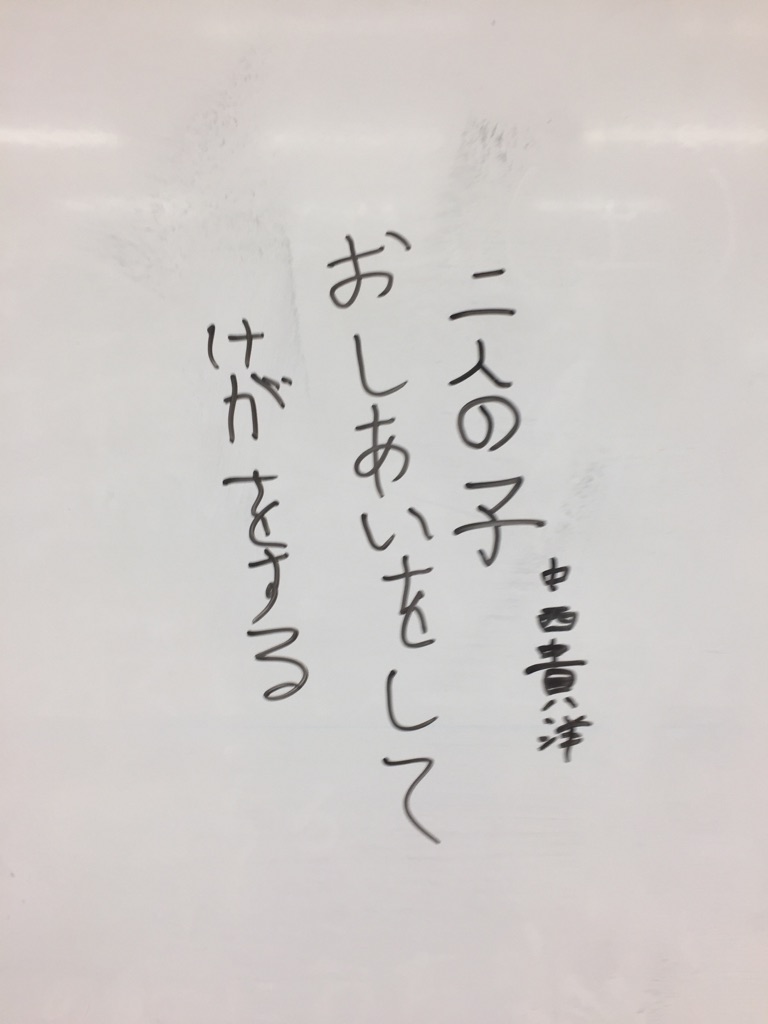 中西貴洋
二人の子
おしあいをして
けがをする